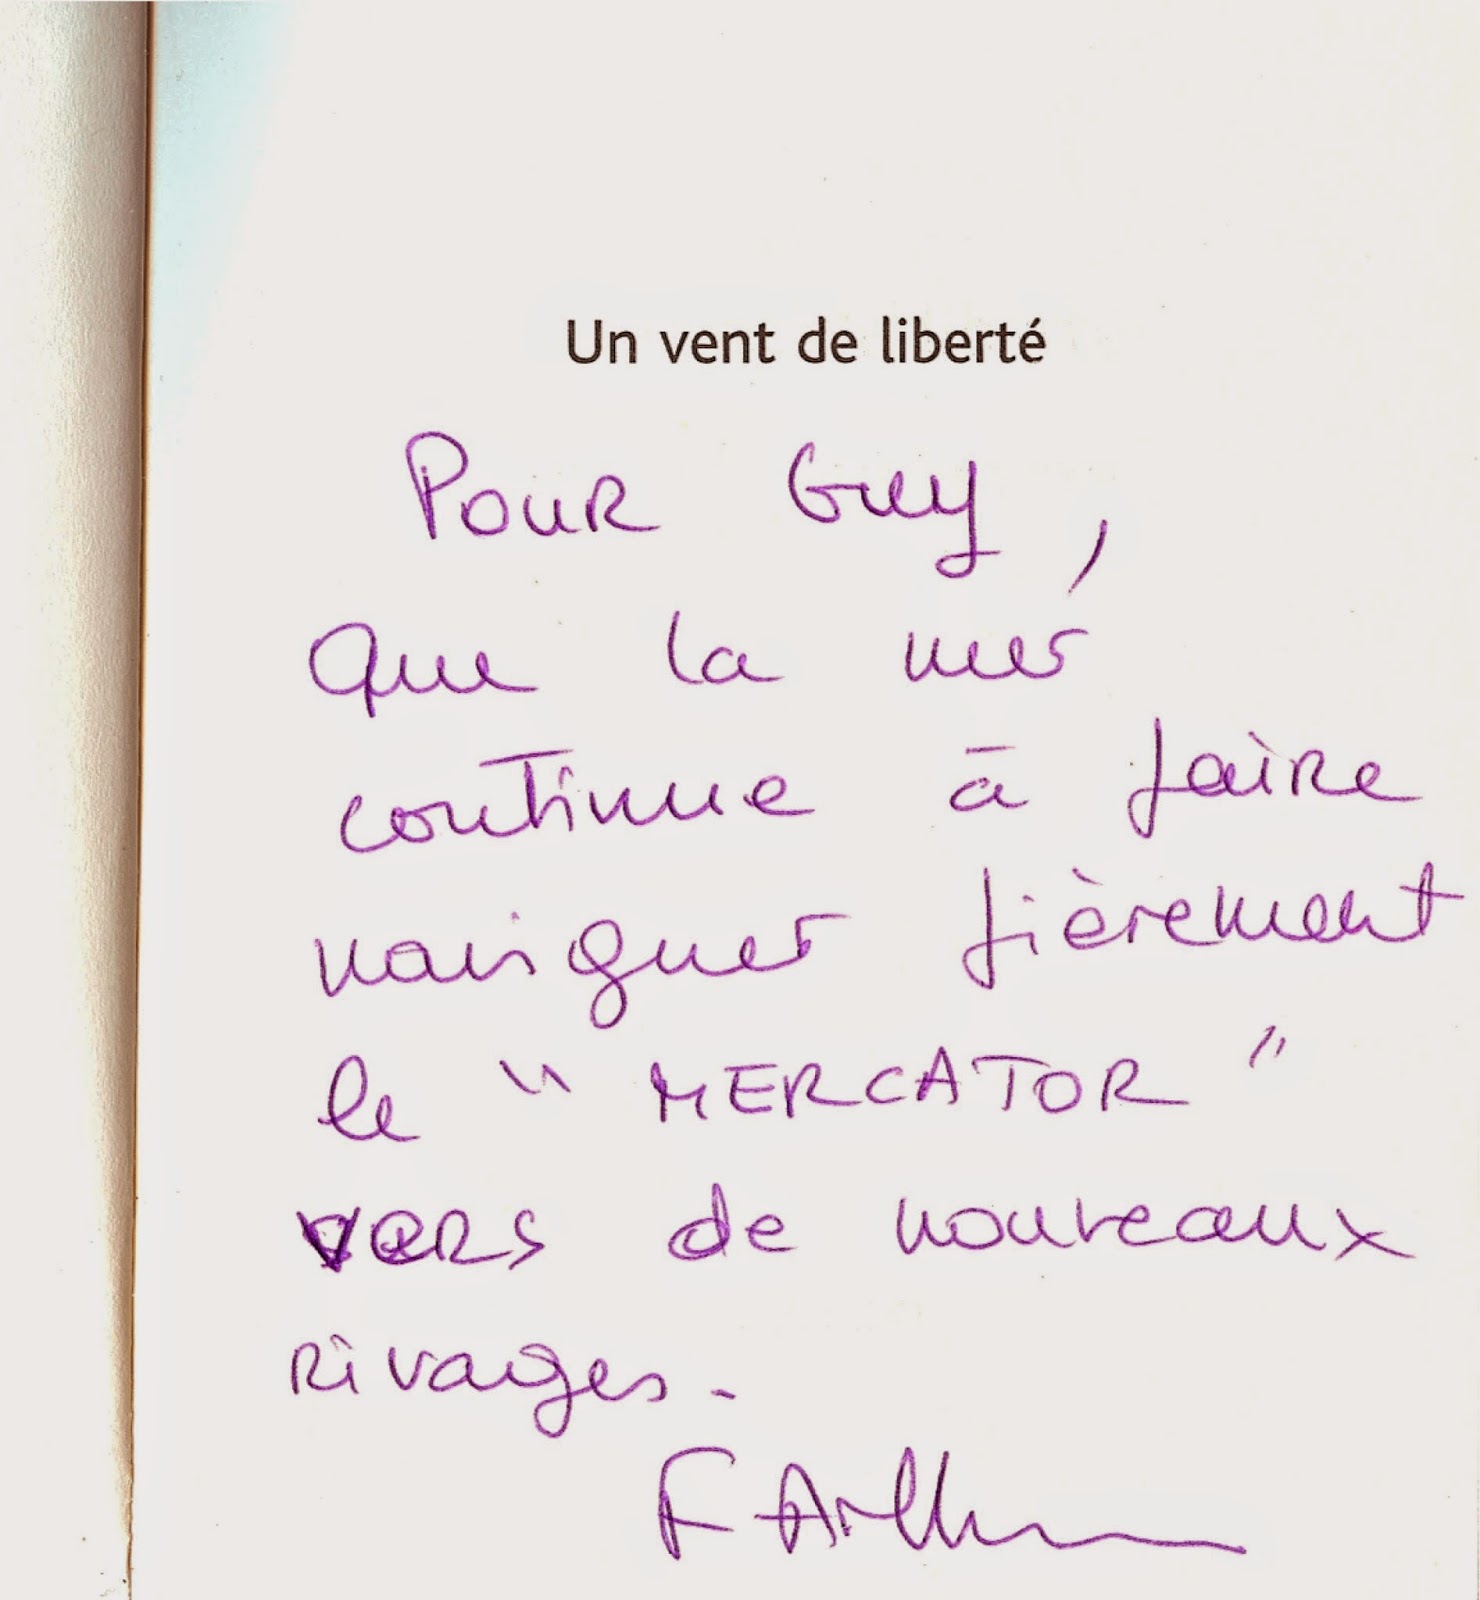 Un vent de liberté
Pour Guy,
Que la mer
continue à faire
naviguer fièrement
le "MERCATOR"
vers de nouveaux
rivages.